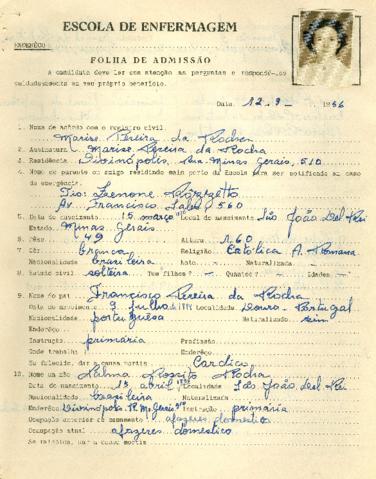 ESCOLA DE ENFERMAGEM
ENDEREÇO
FOLHA DE ADMISSÃO
A candidata deve ler com atenção as perguntas e respondê-las
cuidadosamente em seu próprio benefício.
Data 12-9- 1966
1. Nome de acôrdo com o registro civil.
Marise Pereira da Rocha
2. Assinatura Marise Pereira da Rocha
3. Residência Divinópolis, Rua Minas Gerais, 510
4. Nome do parente ou amigo residindo mais perto da Escola para ser notificado em caso
de emergência.
Tio:
Av. Francisco Sales, 560
5. Data do nascimento 15 março Local do nascimento São João Del Rei
Estado Minas Gerais
6. Pêso 49 Altura 1.60
7. Côr branca Religião Católica A. Romana
Nacionalidade brasileira Nato - Naturalizada -
8. Estado civil solteira Tem filhos? - Quantos? - Idades -
9. Nome do pai Francisco Pereira da Rocha
Data do nascimento 9 julho Localidade Douro - Portugal
Nacionalidade portuguesa Naturalizado sim
Endereço
Instrução primária Profissão
Onde trabalha
Se falecido, dar a causa mortis Cardíaco
10. Nome da mãe Rocha
Data do nascimento 13 abril Localidade São João Del Rei
Nacionalidade brasileira Naturalizada
Enderêço Divinópolis R. M. Gerais Instrução primária
Ocupação anterior do casamento afazeres domestico
Ocupação atual afazeres domestico
Se falecida, dar a causa mortis